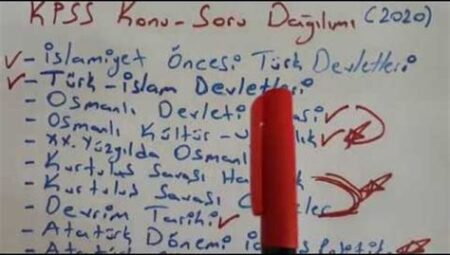 KPSS Konu-Soru Dağılımı (2020)
- İslamiyet Öncesi Türk Devletleri
- Türk-İslam Devletleri
- Osmanlı Devleti
- Osmanlı Kültür-
- XX. Yüzyılda Osmanlı
- Kurtuluş Savaşı
- Kurtuluş Savaşı
- Devrim Tarihi
- Atatürk Dönemi